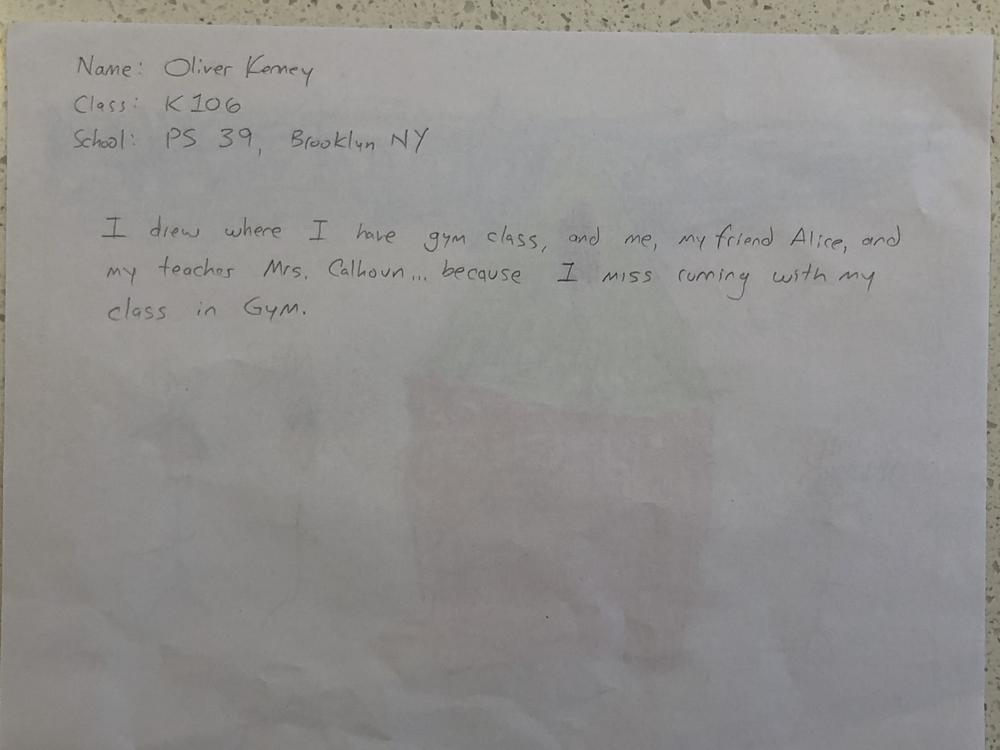 Name: Oliver Kerney
Class: K106
School: PS 39, Brooklyn NY
I drew where I have gym class, and me, my friend Alice, and
my teacher Mrs. Calhoun... because I miss running with my
class in Gym.